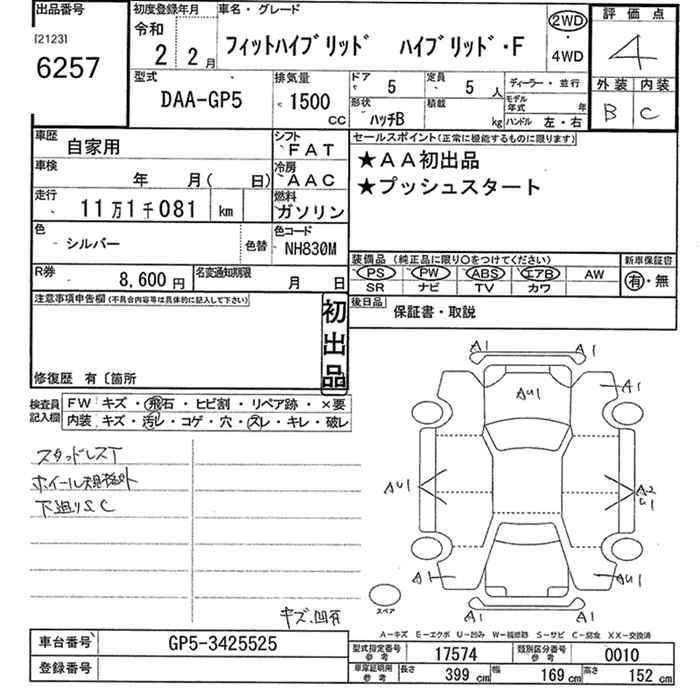 出品番号 初度登録年月 車名・グレード 評価点
[2123] 令和 2WD
6257 2年 2月 フィットハイブリッド ハイブリッド・F 4WD 4
型式 排気量 ドア 5 定員 5人 ディーラー・並行 外装 内装
DAA-GP5 1500 CC 形状 ハッチB 積載 kg モデル年式 年 ハンドル 左・右 B C
車歴 自家用 シフト FAT セールスポイント(正常に機能するものに限ります)
車検 年 月( 日) 冷房 AAC ★AA初出品
走行 11万1千081 km 燃料 ガソリン ★プッシュスタート
色 シルバー 色替 色コード NH830M
装備品(純正品に限り○をつけてください) 新車保証書
R券 8,600円 名変通知期限 月 日 PS PW ABS エアB AW 有・無
SR ナビ TV カワ
注意事項申告欄(不具合内容等は具体的に記入して下さい) 初出品 後日品 保証書・取説
修復歴 有〔箇所
検査員記入欄 FW キズ・飛石・ヒビ割・リペア跡・×要
内装 キズ・汚レ・コゲ・穴・スレ・キレ・破レ
A1 A1
AU1 A1
スタッドレスT
ホイール規格外
下廻りS.C
AU1 A2
U1
A1 AU1
スペア
キズ、凹有 A1 A1
A－キズ E－エクボ U－凹み W－補修跡 S－サビ C－腐食 XX－交換済
車台番号 GP5-3425525 型式指定番号 参考 17574 類別区分番号 参考 0010
登録番号 車庫証明用 参考 長さ 399 cm 幅 169 cm 高さ 152 cm